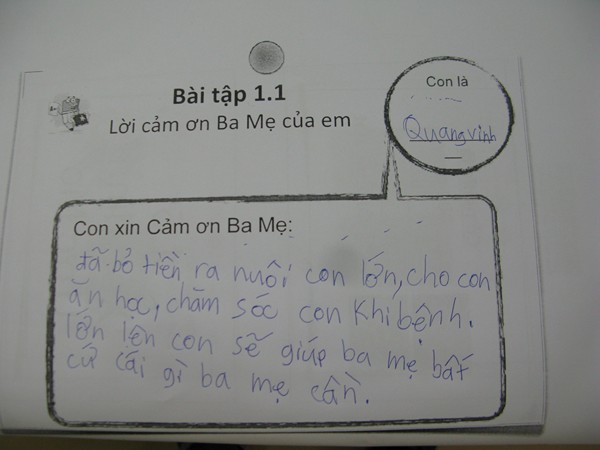 Bài tập 1.1
Lời cảm ơn Ba Mẹ của em
Con là
Quang vinh
Con xin Cảm ơn Ba Mẹ:
đã bỏ tiền ra nuôi con lớn, cho con
ăn học, chăm sóc con khi bệnh.
lớn lên con sẽ giúp ba mẹ bất
cứ cái gì ba mẹ cần.